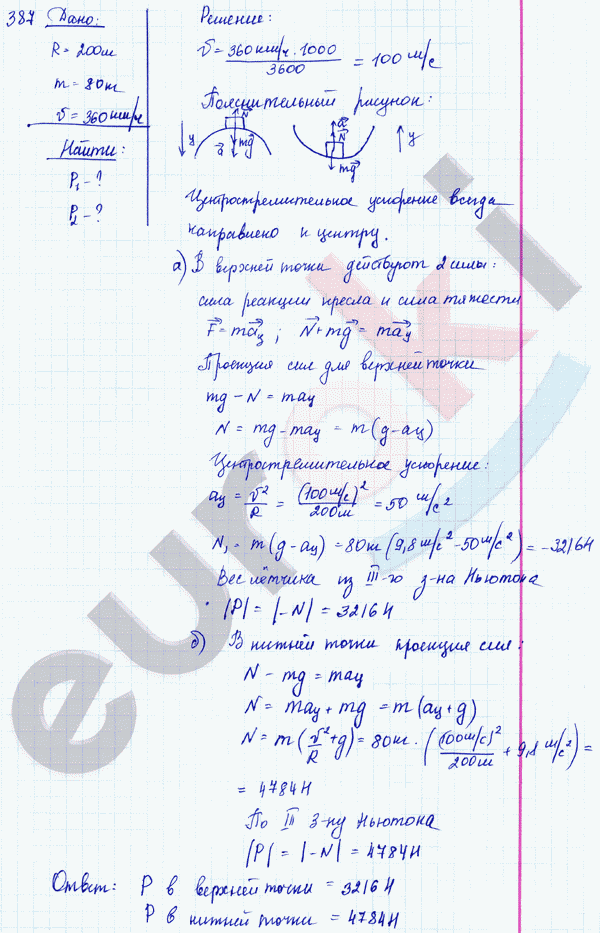 387 Дано:
R = 200м
m = 80кг
v = 360км/ч
Найти:
P₁ - ?
P₂ - ?
Решение:
v = 360км/ч · 1000 / 3600 = 100 м/с
Пояснительный рисунок:
y a N mg
a N mg y
Центростремительное ускорение всегда
направлено к центру.
а) В верхней точки действуют 2 силы:
сила реакции кресла и сила тяжести
F = maц ; N + mg = maц
Проекция сил для верхней точки
mg - N = maц
N = mg - maц = m(g - aц)
Центростремительное ускорение:
aц = v²/R = (100м/с)²/200м = 50 м/с²
N₁ = m(g - aц) = 80кг (9,8 м/с² - 50 м/с²) = -3216Н
Вес лётчика из III-го з-на Ньютона
|P| = |-N| = 3216Н
б) В нижней точки проекция сил:
N - mg = maц
N = maц + mg = m(aц + g)
N = m(v²/R + g) = 80кг · ((100м/с)²/200м + 9,8 м/с²) =
= 4784Н
По III з-ну Ньютона
|P| = |-N| = 4784Н
Ответ: P в верхней точки = 3216Н
P в нижней точки = 4784Н
euroki